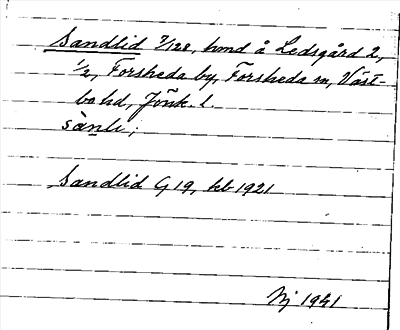 Sandlid 7/128, hmd å Ledsgård 2,
1/2, Forsheda by, Forsheda sn, Väst-
bo hd, Jönk. l.
sànli;
Sandlid G 19, kb 1921
Nj 1941